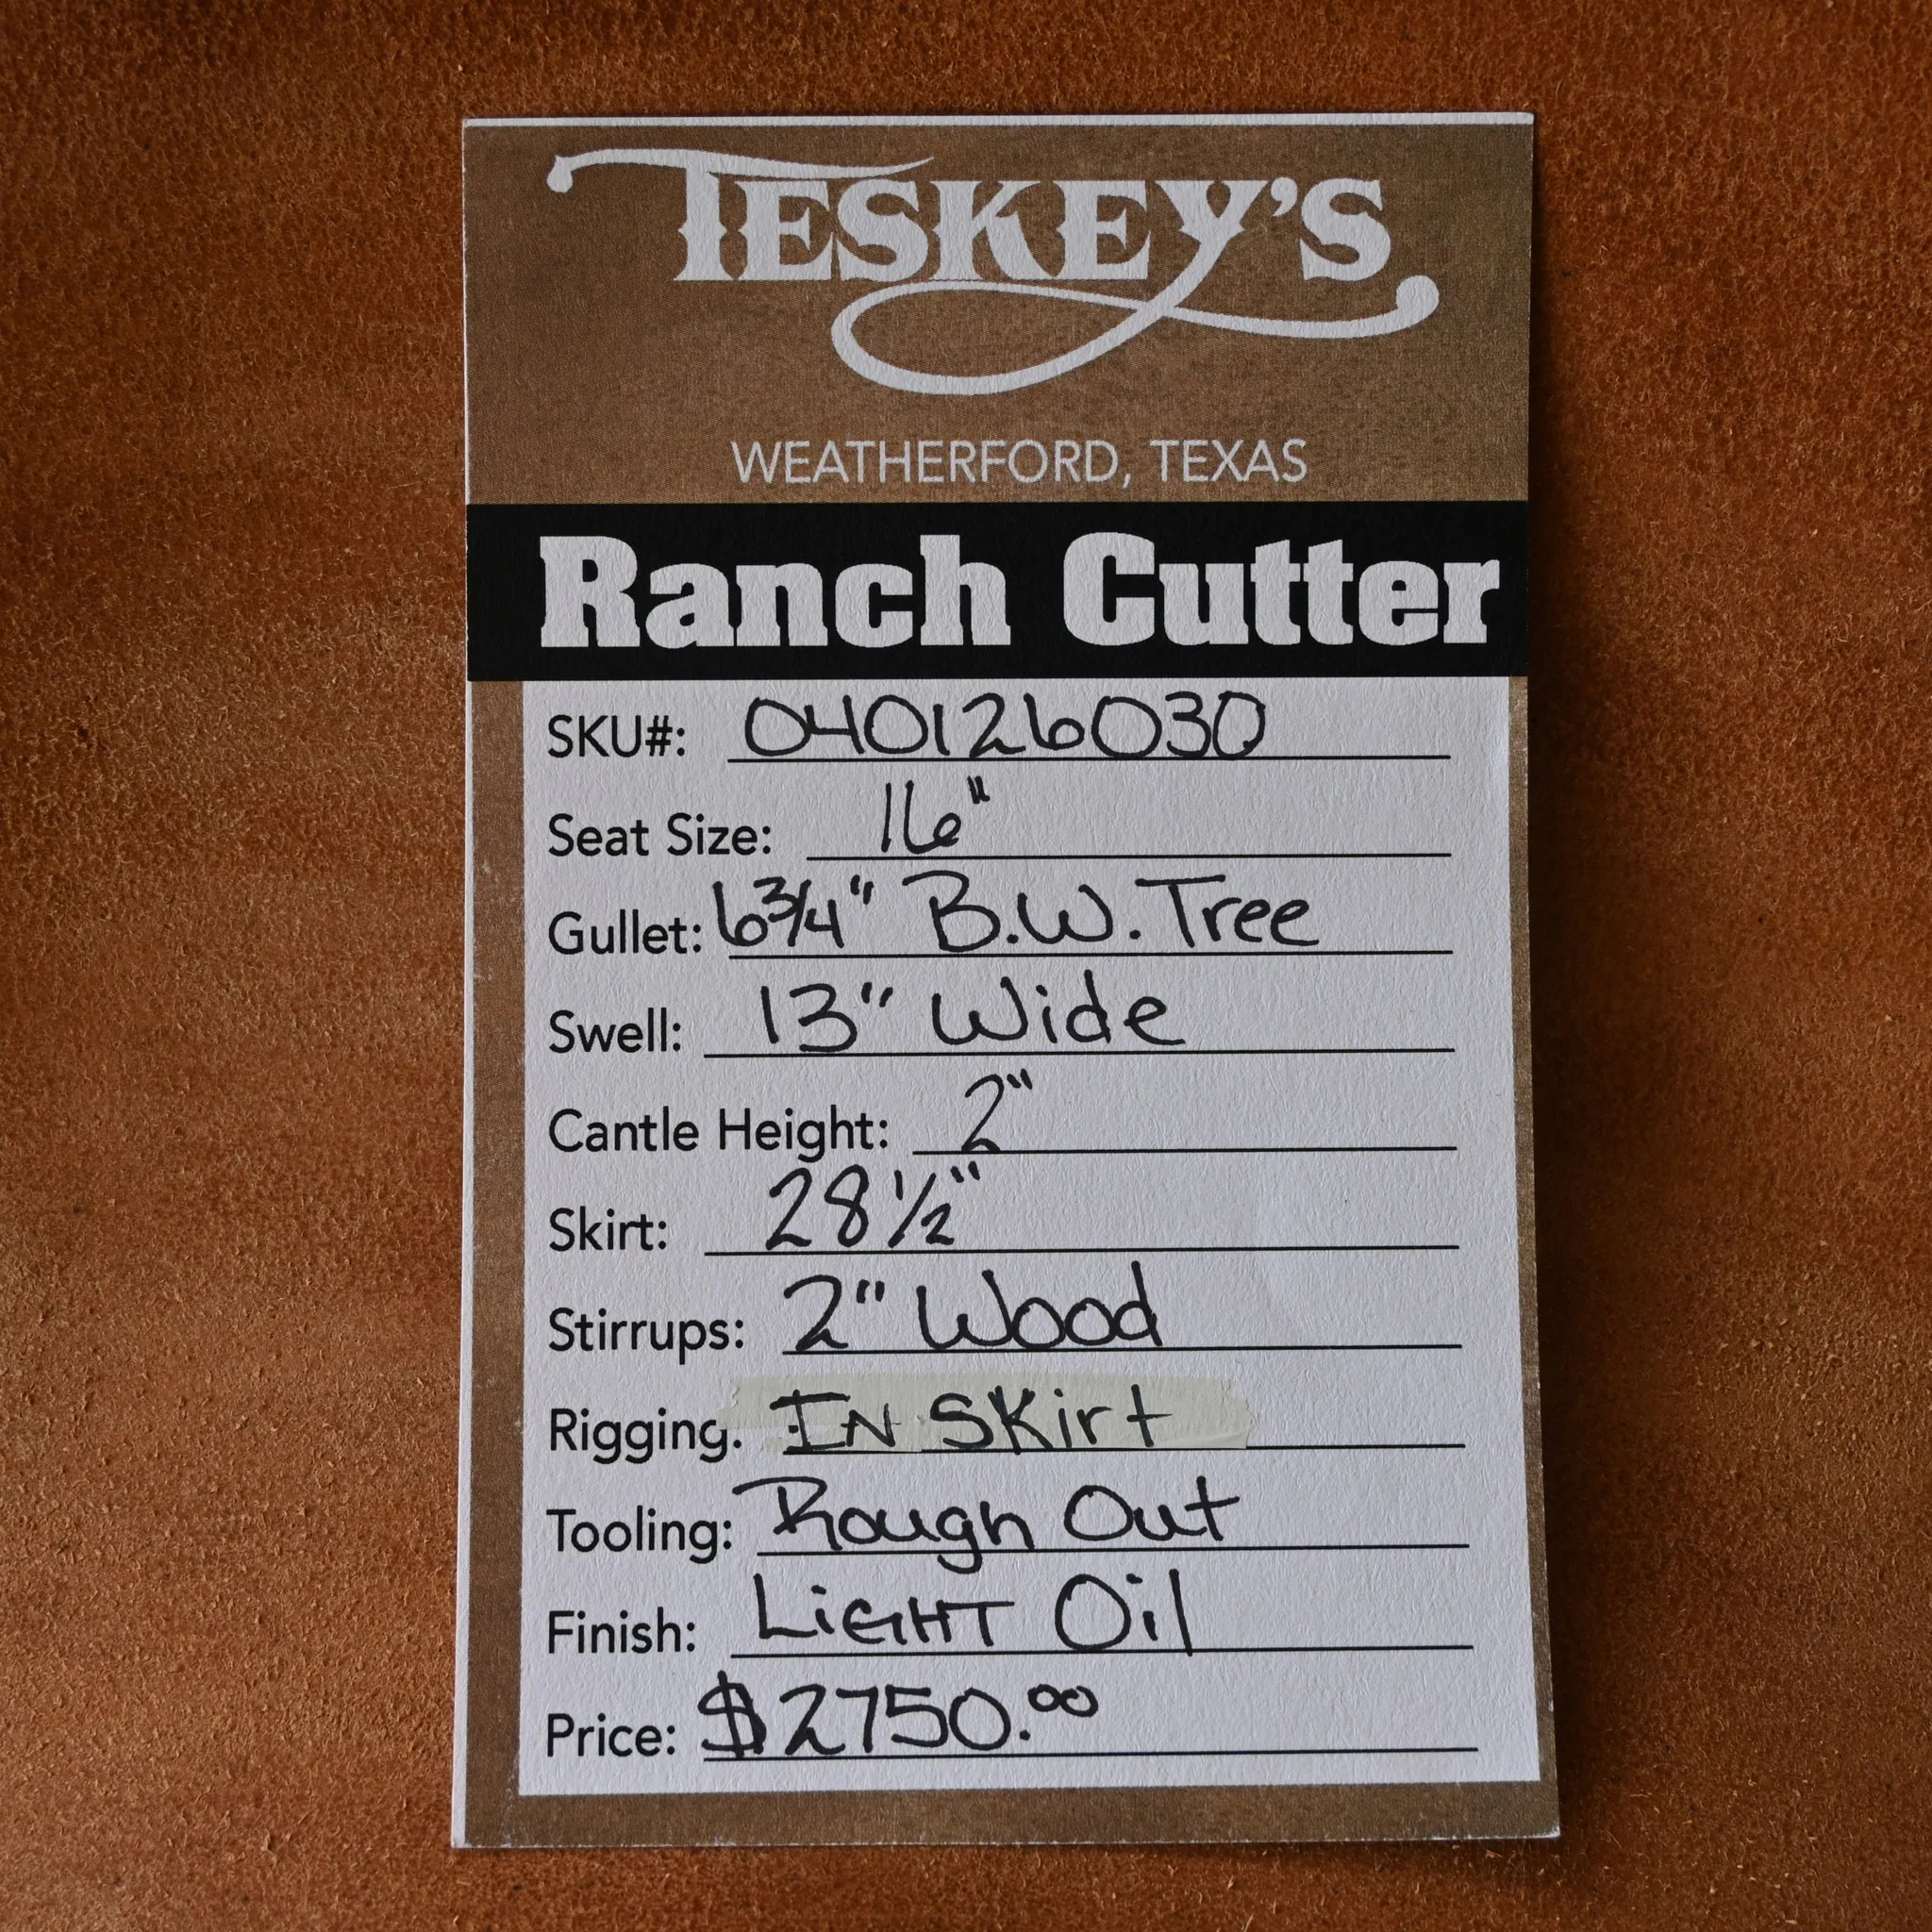 TESKEY'S
WEATHERFORD, TEXAS
Ranch Cutter
SKU#: 040126030
Seat Size: 16"
Gullet: 6 3/4" B.W. Tree
Swell: 13" Wide
Cantle Height: 2"
Skirt: 28 1/2"
Stirrups: 2" Wood
Rigging: IN SKirt
Tooling: Rough Out
Finish: LiGHT Oil
Price: $2750.00